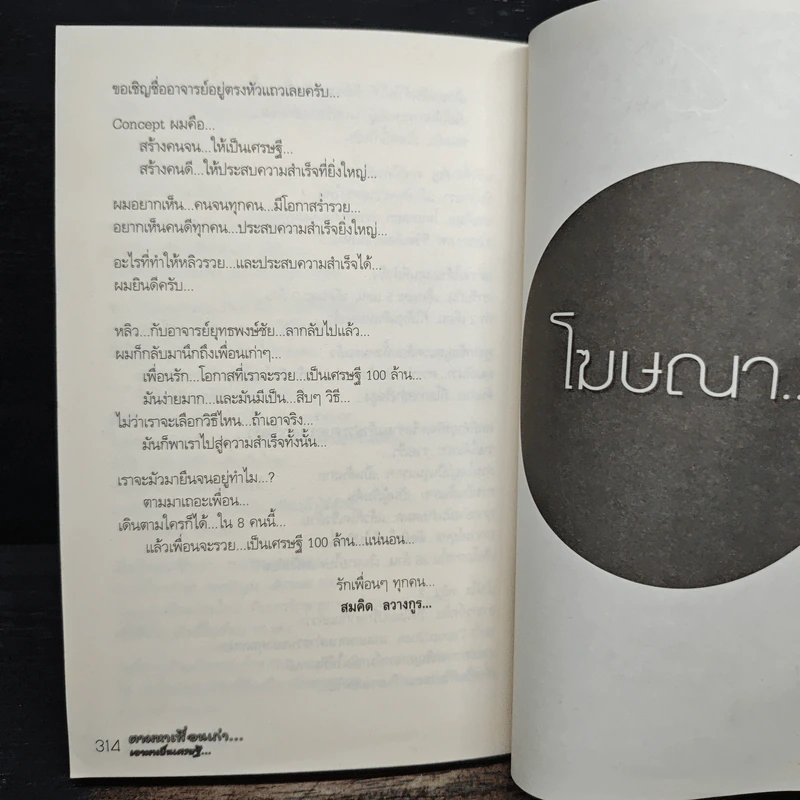 ขอเชิญชื่ออาจารย์อยู่ตรงหัวแถวเลยครับ...
Concept ผมคือ...
สร้างคนจน...ให้เป็นเศรษฐี...
สร้างคนดี...ให้ประสบความสำเร็จที่ยิ่งใหญ่...
ผมอยากเห็น...คนจนทุกคน...มีโอกาสร่ำรวย...
อยากเห็นคนดีทุกคน...ประสบความสำเร็จยิ่งใหญ่...
อะไรที่ทำให้หลิวรวย...และประสบความสำเร็จได้...
ผมยินดีครับ...
หลิว...กับอาจารย์ยุทธพงษ์ชัย...ลากลับไปแล้ว...
ผมก็กลับมานึกถึงเพื่อนเก่าๆ...
เพื่อนรัก...โอกาสที่เราจะรวย...เป็นเศรษฐี 100 ล้าน...
มันง่ายมาก...และมันมีเป็น...สิบๆ วิธี...
ไม่ว่าเราจะเลือกวิธีไหน...ถ้าเอาจริง...
มันก็พาเราไปสู่ความสำเร็จทั้งนั้น...
เราจะมัวมายืนจนอยู่ทำไม...?
ตามมาเถอะเพื่อน...
เดินตามใครก็ได้...ใน 8 คนนี้...
แล้วเพื่อนจะรวย...เป็นเศรษฐี 100 ล้าน...แน่นอน...
รักเพื่อนๆ ทุกคน...
สมคิด ลวางกูร...
314 ตามหาเพื่อนเก่า...
เอามาเป็นเศรษฐี...
โฆษณา...